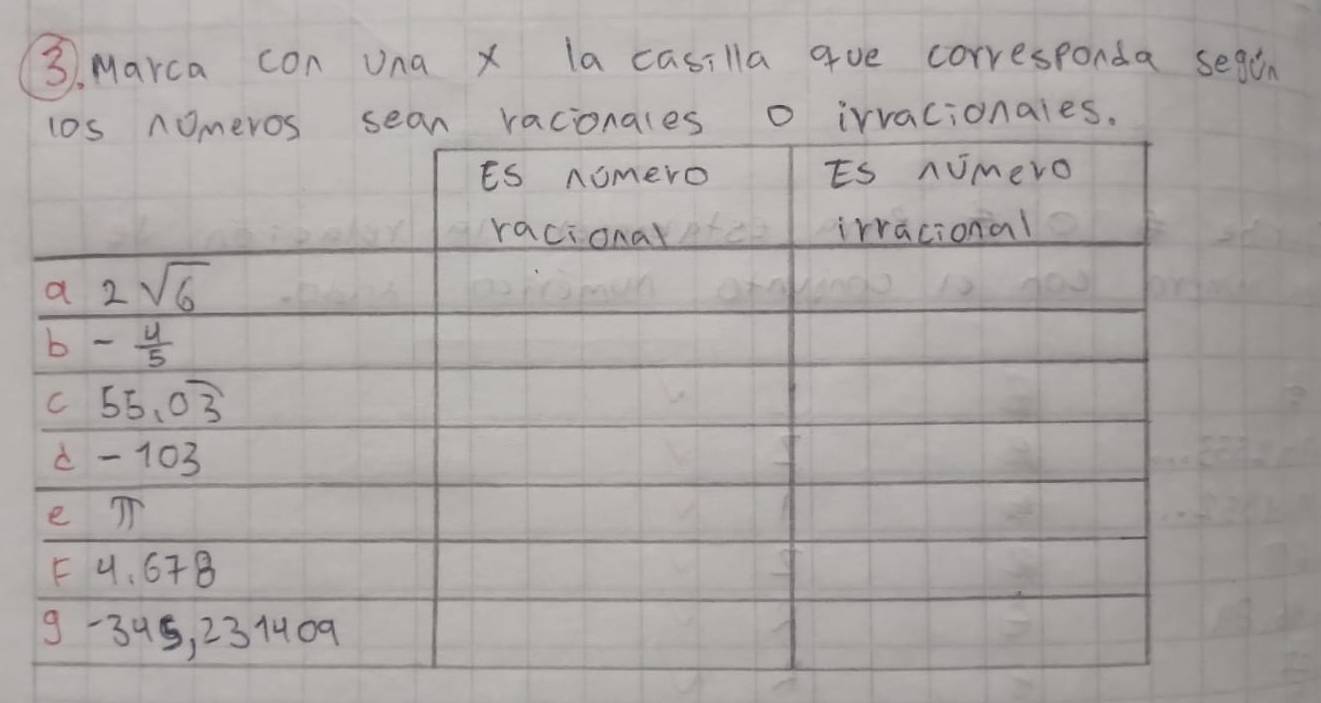 3. Marca con una x la casilla que corresponda según
los números sean racionales o irracionales.
Es número racional
Es número irracional
a 2√6
b - 4/5
c 55,03̅
d - 103
e π
F 4.678
g -345,231409